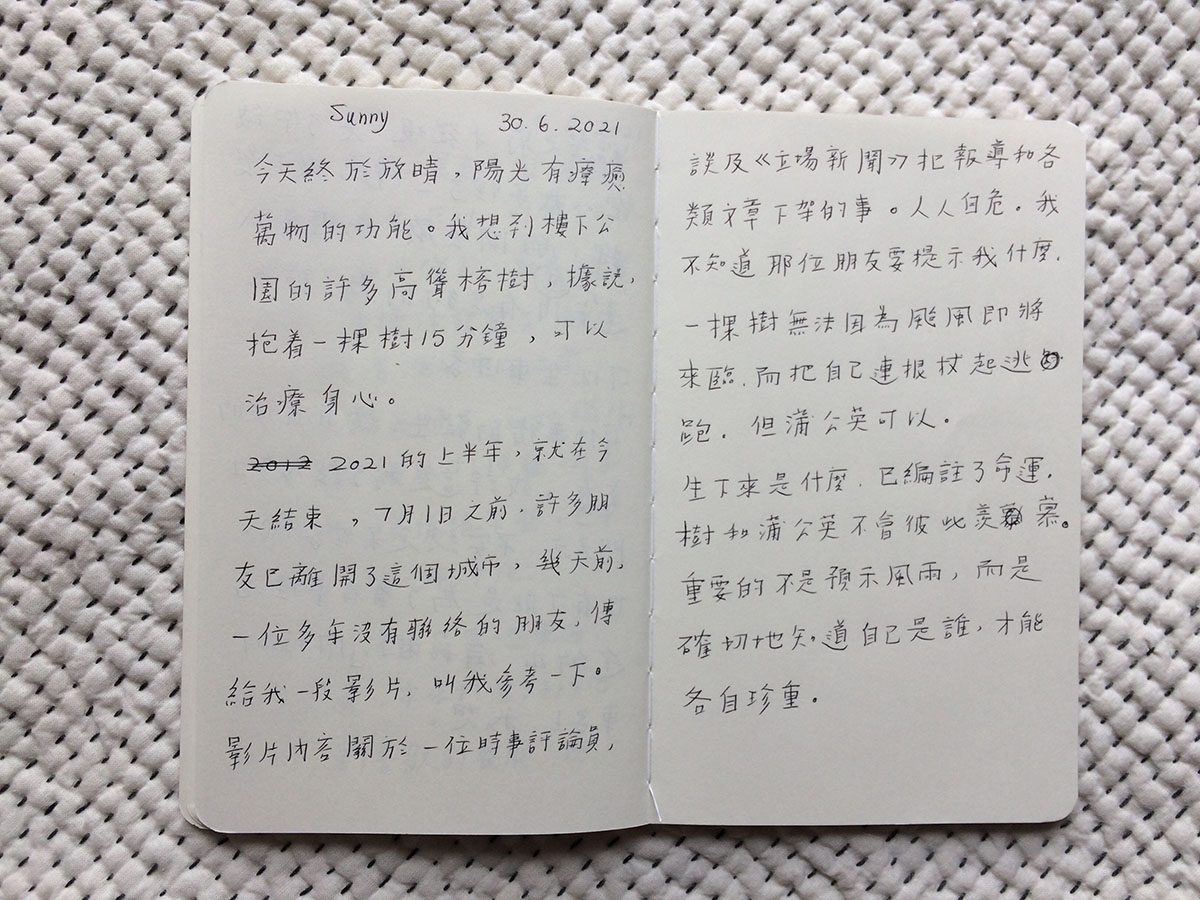 Sunny 30.6.2021
今天終於放晴，陽光有療癒
萬物的功能。我想到樓下公
園的許多高聳榕樹，據說，
抱着一棵樹15分鐘，可以
治療身心。
2012 2021的上半年，就在今
天結束，7月1日之前，許多朋
友已離開了這個城市，幾天前，
一位多年沒有聯絡的朋友，傳
給我一段影片，叫我參考一下。
影片內容關於一位時事評論員，
談及《立場新聞》把報導和各
類文章下架的事。人人自危。我
不知道那位朋友要提示我什麼，
一棵樹無法因為颱風即將
來臨，而把自己連根拔起逃
跑，但蒲公英可以。
生下來是什麼，已編註了命運，
樹和蒲公英不會彼此羨慕。
重要的不是預示風雨，而是
確切地知道自己是誰，才能
各自珍重。